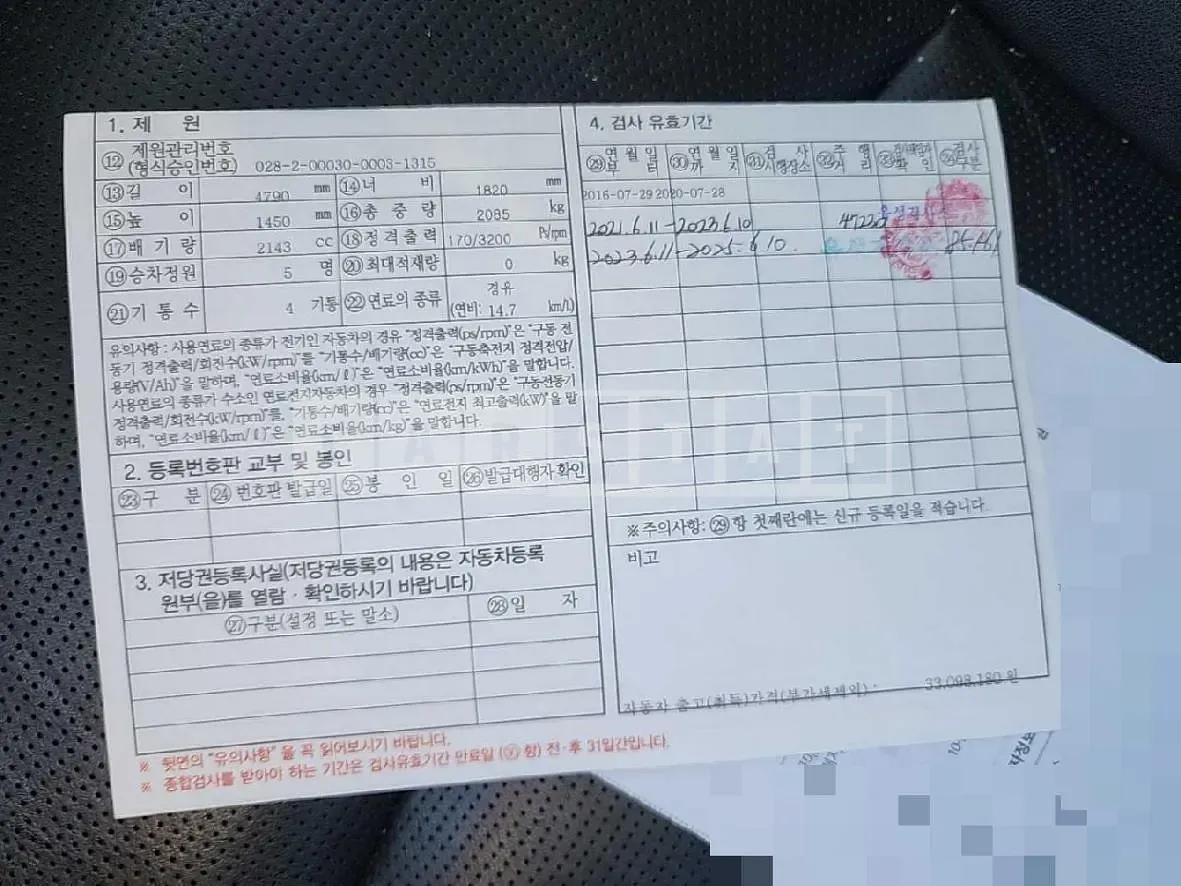 1. 제 원
⑫ 제원관리번호
(형식승인번호) 028-2-00030-0003-1315
⑬ 길 이 4790 mm ⑭ 너 비 1820 mm
⑮ 높 이 1450 mm ⑯ 총 중 량 2085 kg
⑰ 배 기 량 2143 cc ⑱ 정격출력 170/3200 Ps/rpm
⑲ 승차정원 5 명 ⑳ 최대적재량 0 kg
㉑ 기 통 수 4 기통 ㉒ 연료의 종류 경유
(연비: 14.7 km/l)
유의사항 : 사용연료의 종류가 전기인 자동차의 경우 "정격출력(ps/rpm)"은 "구동 전
동기 정격출력/회전수(kW/rpm)"를 "기통수/배기량(cc)"은 "구동축전지 정격전압/
용량(V/Ah)"을 말하며, "연료소비율(km/ℓ)"은 "연료소비율(km/kWh)"을 말합니다.
사용연료의 종류가 수소인 연료전지자동차의 경우 "정격출력(ps/rpm)"은 "구동전동기
정격출력/회전수(kW/rpm)"를, "기통수/배기량(cc)"은 "연료전지 최고출력(kW)"을 말
하며, "연료소비율(km/ℓ)"은 "연료소비율(km/kg)"을 말합니다.
2. 등록번호판 교부 및 봉인
㉓ 구 분 ㉔ 번호판 발급일 ㉕ 봉 인 일 ㉖ 발급대행자 확인
3. 저당권등록사실(저당권등록의 내용은 자동차등록
원부(을)를 열람 · 확인하시기 바랍니다)
㉗ 구분(설정 또는 말소) ㉘ 일 자
※ 뒷면의 "유의사항" 을 꼭 읽어보시기 바랍니다.
※ 종합검사를 받아야 하는 기간은 검사유효기간 만료일 (㉚ 항) 전·후 31일간입니다.
4. 검사 유효기간
㉙ 연 월 일 부 터 ㉚ 연 월 일 까 지 ㉛ 검 사 시행장소 ㉜ 주 행 거 리 ㉝ 확 인 ㉞ 검사 구분
2016-07-29 2020-07-28
2021. 6. 11 - 2023. 6. 10
2023. 6. 11 - 2025. 6. 10.
※ 주의사항: ㉙ 항 첫째란에는 신규 등록일을 적습니다.
비고
자동차 출고(취득)가격(부가세제외) : 33,098,180 원